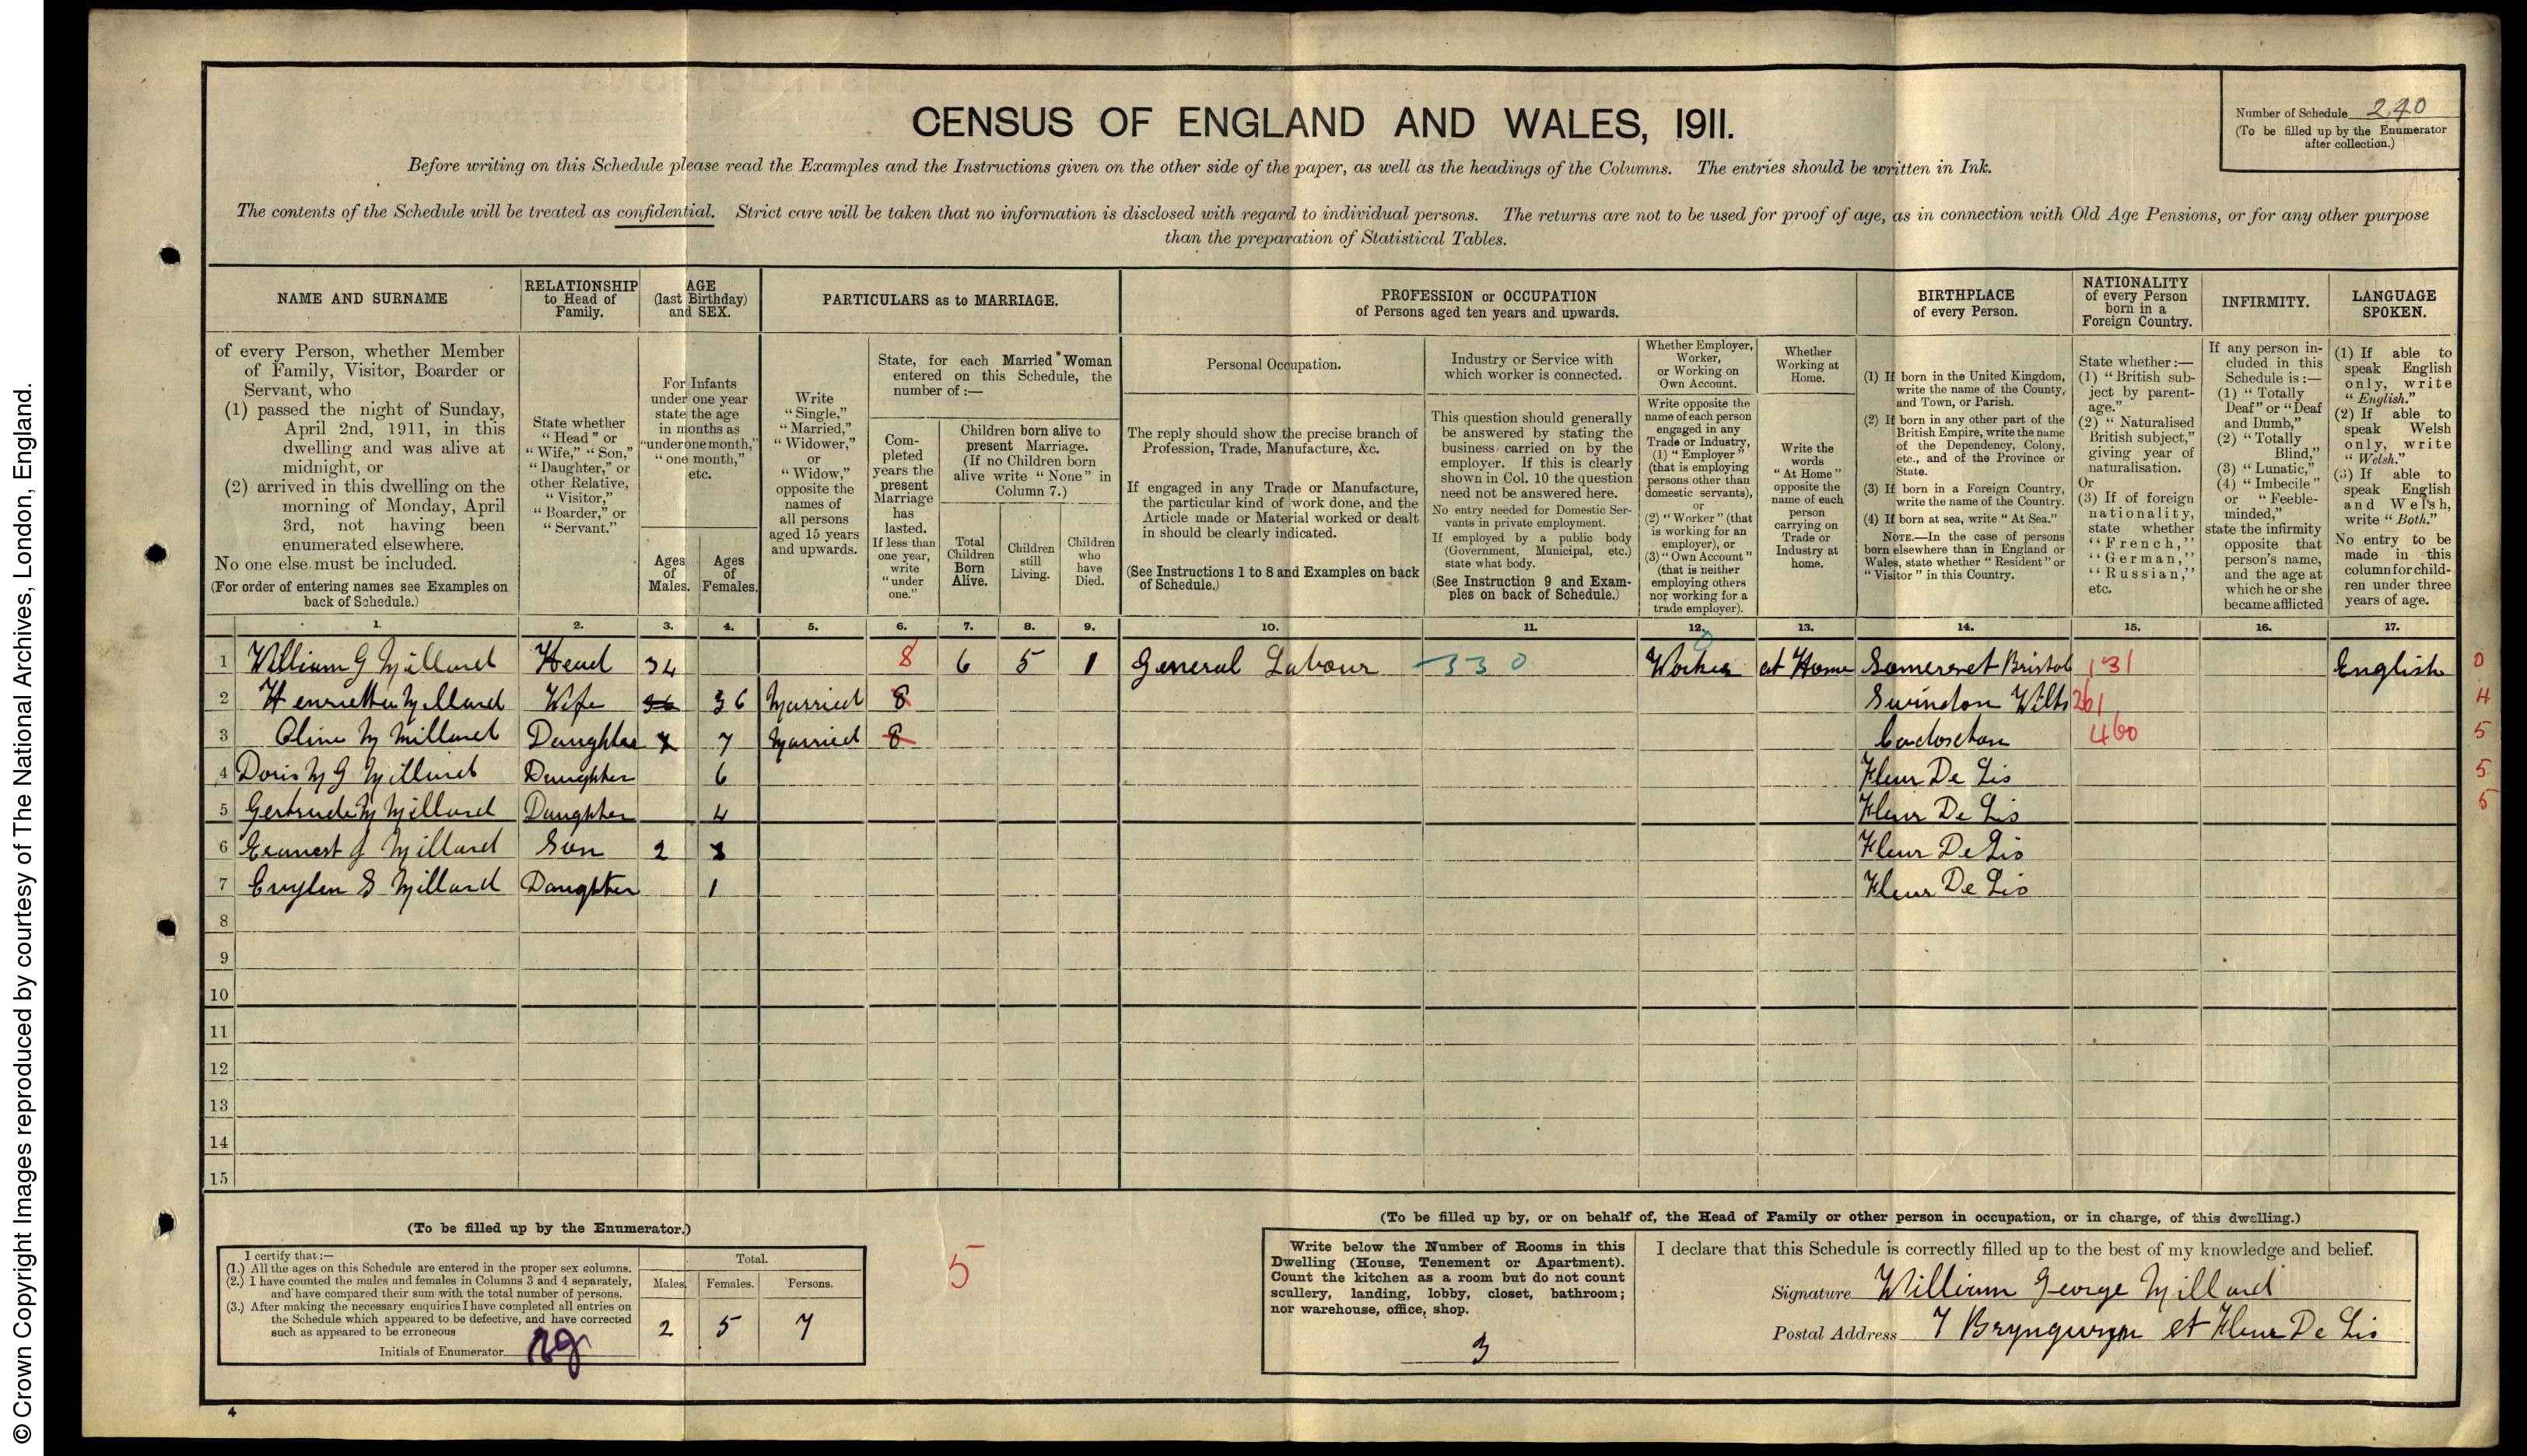 © Crown Copyright Images reproduced by courtesy of The National Archives, London, England.
CENSUS OF ENGLAND AND WALES, 1911.
Number of Schedule 240
(To be filled up by the Enumerator
after collection.)
Before writing on this Schedule please read the Examples and the Instructions given on the other side of the paper, as well as the headings of the Columns. The entries should be written in Ink.
The contents of the Schedule will be treated as confidential. Strict care will be taken that no information is disclosed with regard to individual persons. The returns are not to be used for proof of age, as in connection with Old Age Pensions, or for any other purpose
than the preparation of Statistical Tables.
NAME AND SURNAME
of every Person, whether Member
of Family, Visitor, Boarder or
Servant, who
(1) passed the night of Sunday,
April 2nd, 1911, in this
dwelling and was alive at
midnight, or
(2) arrived in this dwelling on the
morning of Monday, April
3rd, not having been
enumerated elsewhere.
No one else must be included.
(For order of entering names see Examples on
back of Schedule.)
RELATIONSHIP
to Head of
Family.
State whether
"Head" or
"Wife," "Son,"
"Daughter," or
other Relative,
"Visitor,"
"Boarder," or
"Servant."
AGE
(last Birthday)
and SEX.
For Infants
under one year
state the age
in months as
"under one month,"
"one month,"
etc.
Ages
of
Males.
Ages
of
Females.
PARTICULARS as to MARRIAGE.
Write
"Single,"
"Married,"
"Widower,"
or
"Widow,"
opposite the
names of
all persons
aged 15 years
and upwards.
State, for each Married Woman
entered on this Schedule, the
number of :—
Com-
pleted
years the
present
Marriage
has
lasted.
If less than
one year,
write
"under
one."
Children born alive to
present Marriage.
(If no Children born
alive write "None" in
Column 7.)
Total
Children
Born
Alive.
Children
still
Living.
Children
who
have
Died.
PROFESSION or OCCUPATION
of Persons aged ten years and upwards.
Personal Occupation.
The reply should show the precise branch of
Profession, Trade, Manufacture, &c.
If engaged in any Trade or Manufacture,
the particular kind of work done, and the
Article made or Material worked or dealt
in should be clearly indicated.
(See Instructions 1 to 8 and Examples on back
of Schedule.)
Industry or Service with
which worker is connected.
This question should generally
be answered by stating the
business carried on by the
employer. If this is clearly
shown in Col. 10 the question
need not be answered here.
No entry needed for Domestic Ser-
vants in private employment.
If employed by a public body
(Government, Municipal, etc.)
state what body.
(See Instruction 9 and Exam-
ples on back of Schedule.)
Whether Employer,
Worker,
or Working on
Own Account.
Write opposite the
name of each person
engaged in any
Trade or Industry,
(1) "Employer"
(that is employing
persons other than
domestic servants),
or
(2) "Worker" (that
is working for an
employer), or
(3) "Own Account"
(that is neither
employing others
nor working for a
trade employer).
Whether
Working at
Home.
Write the
words
"At Home"
opposite the
name of each
person
carrying on
Trade or
Industry at
home.
BIRTHPLACE
of every Person.
(1) If born in the United Kingdom,
write the name of the County,
and Town, or Parish.
(2) If born in any other part of the
British Empire, write the name
of the Dependency, Colony,
etc., and of the Province or
State.
(3) If born in a Foreign Country,
write the name of the Country.
(4) If born at sea, write "At Sea."
NOTE.—In the case of persons
born elsewhere than in England or
Wales, state whether "Resident" or
"Visitor" in this Country.
NATIONALITY
of every Person
born in a
Foreign Country.
State whether :—
(1) "British sub-
ject by parent-
age."
Or
(2) "Naturalised
British subject,"
giving year of
naturalisation.
Or
(3) If of foreign
nationality,
state whether
"French,"
"German,"
"Russian,"
etc.
INFIRMITY.
If any person in-
cluded in this
Schedule is :—
(1) "Totally
Deaf" or "Deaf
and Dumb,"
(2) "Totally
Blind,"
(3) "Lunatic,"
(4) "Imbecile"
or "Feeble-
minded,"
state the infirmity
opposite that
person's name,
and the age at
which he or she
became afflicted
LANGUAGE
SPOKEN.
(1) If able to
speak English
only, write
"English."
(2) If able to
speak Welsh
only, write
"Welsh."
(3) If able to
speak English
and Welsh,
write "Both."
No entry to be
made in this
column for child-
ren under three
years of age.
1. 2. 3. 4. 5. 6. 7. 8. 9. 10. 11. 12. 13. 14. 15. 16. 17.
1 William G Millard Head 34 8 6 5 1 General Labour 330 Worker at Home Somerset Bristol 131 English 0
2 Henrietta Millard Wife 36 36 Married 8 Swindon Wilts 261 4
3 Olive M Millard Daughter 7 7 Married 8 460 5
4 Doris M G Millard Daughter 6 Fleur De Lis 5
5 Gertrude M Millard Daughter 4 Fleur De Lis 5
6 Earnest J Millard Son 2 Fleur De Lis
7 Evylen S Millard Daughter 1 Fleur De Lis
8
9
10
11
12
13
14
15
(To be filled up by the Enumerator.)
I certify that :—
(1.) All the ages on this Schedule are entered in the proper sex columns.
(2.) I have counted the males and females in Columns 3 and 4 separately,
and have compared their sum with the total number of persons.
(3.) After making the necessary enquiries I have completed all entries on
the Schedule which appeared to be defective, and have corrected
such as appeared to be erroneous
Initials of Enumerator
Total.
Males. Females. Persons.
2 5 7
5
(To be filled up by, or on behalf of, the Head of Family or other person in occupation, or in charge, of this dwelling.)
Write below the Number of Rooms in this
Dwelling (House, Tenement or Apartment).
Count the kitchen as a room but do not count
scullery, landing, lobby, closet, bathroom;
nor warehouse, office, shop.
3
I declare that this Schedule is correctly filled up to the best of my knowledge and belief.
Signature William George Millard
Postal Address 7 Bryngwyn st Fleur De Lis
4